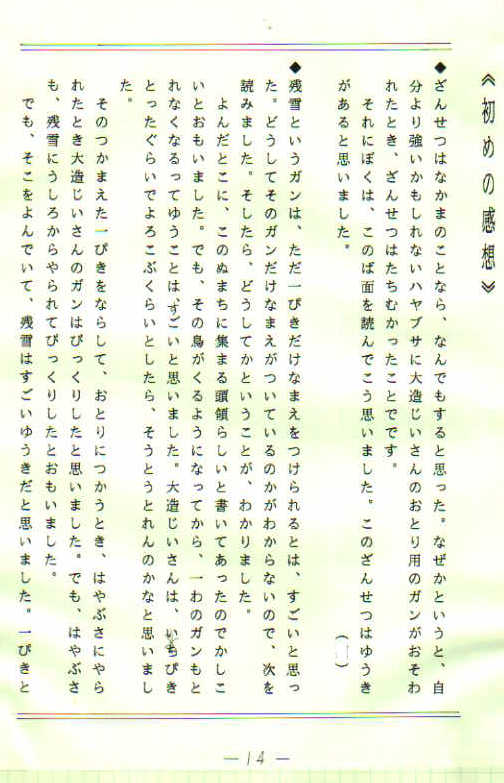 《初めの感想》
◆ざんせつはなかまのことなら、なんでもすると思った。なぜかというと、自
分より強いかもしれないハヤブサに大造じいさんのおとり用のガンがおそわ
れたとき、ざんせつはたちむかったことでです。
それにぼくは、このば面を読んでこう思いました。このざんせつはゆうき
があると思いました。
( )
◆残雪というガンは、ただ一ぴきだけなまえをつけられるとは、すごいと思っ
た。どうしてそのガンだけなまえがついているのかがわからないので、次を
読みました。そしたら、どうしてかということが、わかりました。
よんだとこに、このぬまちに集まる頭領らしいと書いてあったのでかしこ
いとおもいました。でも、その鳥がくるようになってから、一わのガンもと
れなくなるってゆうことは、すごいと思いました。大造じいさんは、いちぴき
とったぐらいでよろこぶくらいとしたら、そうとうとれんのかなと思いまし
た。
そのつかまえた一ぴきをならして、おとりにつかうとき、はやぶさにやら
れたとき大造じいさんのガンはびっくりしたと思いました。でも、はやぶさ
も、残雪にうしろからやられてびっくりしたとおもいました。
でも、そこをよんでいて、残雪はすごいゆうきだと思いました。一ぴきと
— 14 —